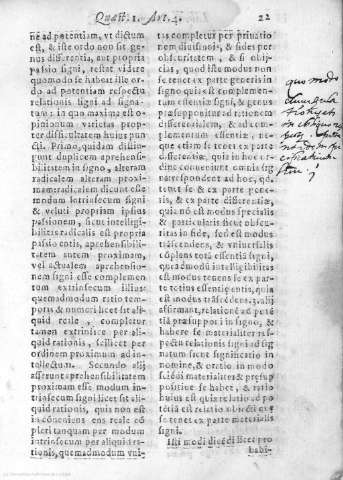 Quæst. 1. Art. 4. 22
ne ad potentiam, vt dictum
est, & iste ordo non sit ge-
nus differentia, aut propria
passio signi, restat videre
quomodo se habeat ille or-
do ad potentiam respectu
relationis signi ad signa-
tum: in quo maxima est o-
pinionum varietas propter
difficultatem huius pun-
cti. Primo, quidam distin-
guunt duplicem aprehensi-
bilitatem in signo, alteram
radicalem alteram proxi-
mam: radicalem dicunt esse
modum intrinsecum signi
& veluti propriam ipsius
passionem, sicut intelligi-
bilitas radicalis est propria
passio entis, aprehensibili-
tatem autem proximam,
vel actualem aprehensio-
nem signi esse complemen-
tum extrinsecum illius:
quemadmodum ratio tem-
poris & numeri licet sit ali-
quid reale, completur
tamen extrinsice per ali-
quid rationis, scilicet per
ordinem proximum ad in-
tellectum. Secundo alij
asserunt aprehensibilitatem
proximam esse modum in-
trinsecum signi licet sit ali-
quid rationis, quia non est
inconueniens ens reale cō
pleri tanquam per modum
intrinsecum per aliquid ra-
tionis, quemadmodum vni-
tas completur per priuatio
nem diuisionis, & fides per
obscuritatem, & si obij-
cias, quod iste modus non
se tenet ex parte generis in
signo quia est complemen-
tum essentiæ signi, & genus
præsupponitur ad rationem
differentialem, & ad com-
plementum essentiæ, neque
se tenet ex parte rationis
differentiæ, quia in hoc or-
dine conueniunt omnia sig-
na respondent ad hoc, qd.
se tenet & ex parte gene-
ris, & ex parte differentiæ,
quia nō est modus specialis
& particularis sicut obscu-
ritas in fide, sed est modus
trāscendens, & vniuersalis
cōplens totā essentiā signi,
quēadmodū intelligibilitas
est modus tenens se ex par-
te totius essentię entis, quia
est modus trāscēdens. 3. alij
affirmant, relationē ad potē
tiā præsupponi in signo, &
habere se materialiter respe-
ctu relationis signi ad sig-
natum sicut significatio in
nomine, & oratio in modo
sciēdi materialiter & præsup
positiue se habet, & ratio
huius est quia relatio ad po
tētiā est relatio ab extrinse-
co & quasi passiua.
Isti modi dicēdi licet pro
babi-
quo modo